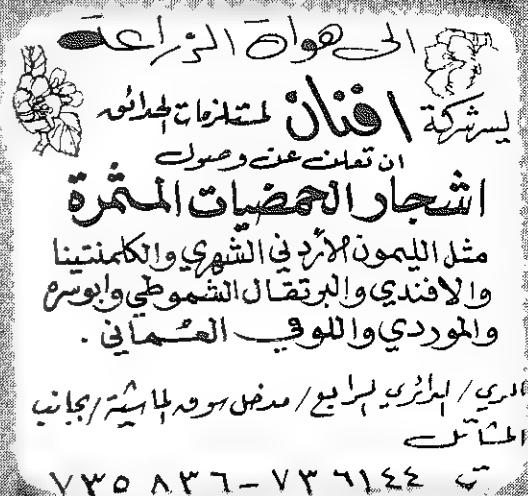 الى هواة الزراعة
يسر شركة افنان لمستلزمات الحدائق
ان تعلن عن وصول
اشجار الحمضيات المثمرة
مثل الليمون الأردني الشهري والكلمنتينا
والافندي والبرتقال الشموطي وابوسره
والموردي واللوفي العُماني .
الري / الدائري الرابع / مدخل سوق الماشية / بجانب
المشاتل
ت ٧٣٦١٤٤ - ٧٣٥٨٣٦